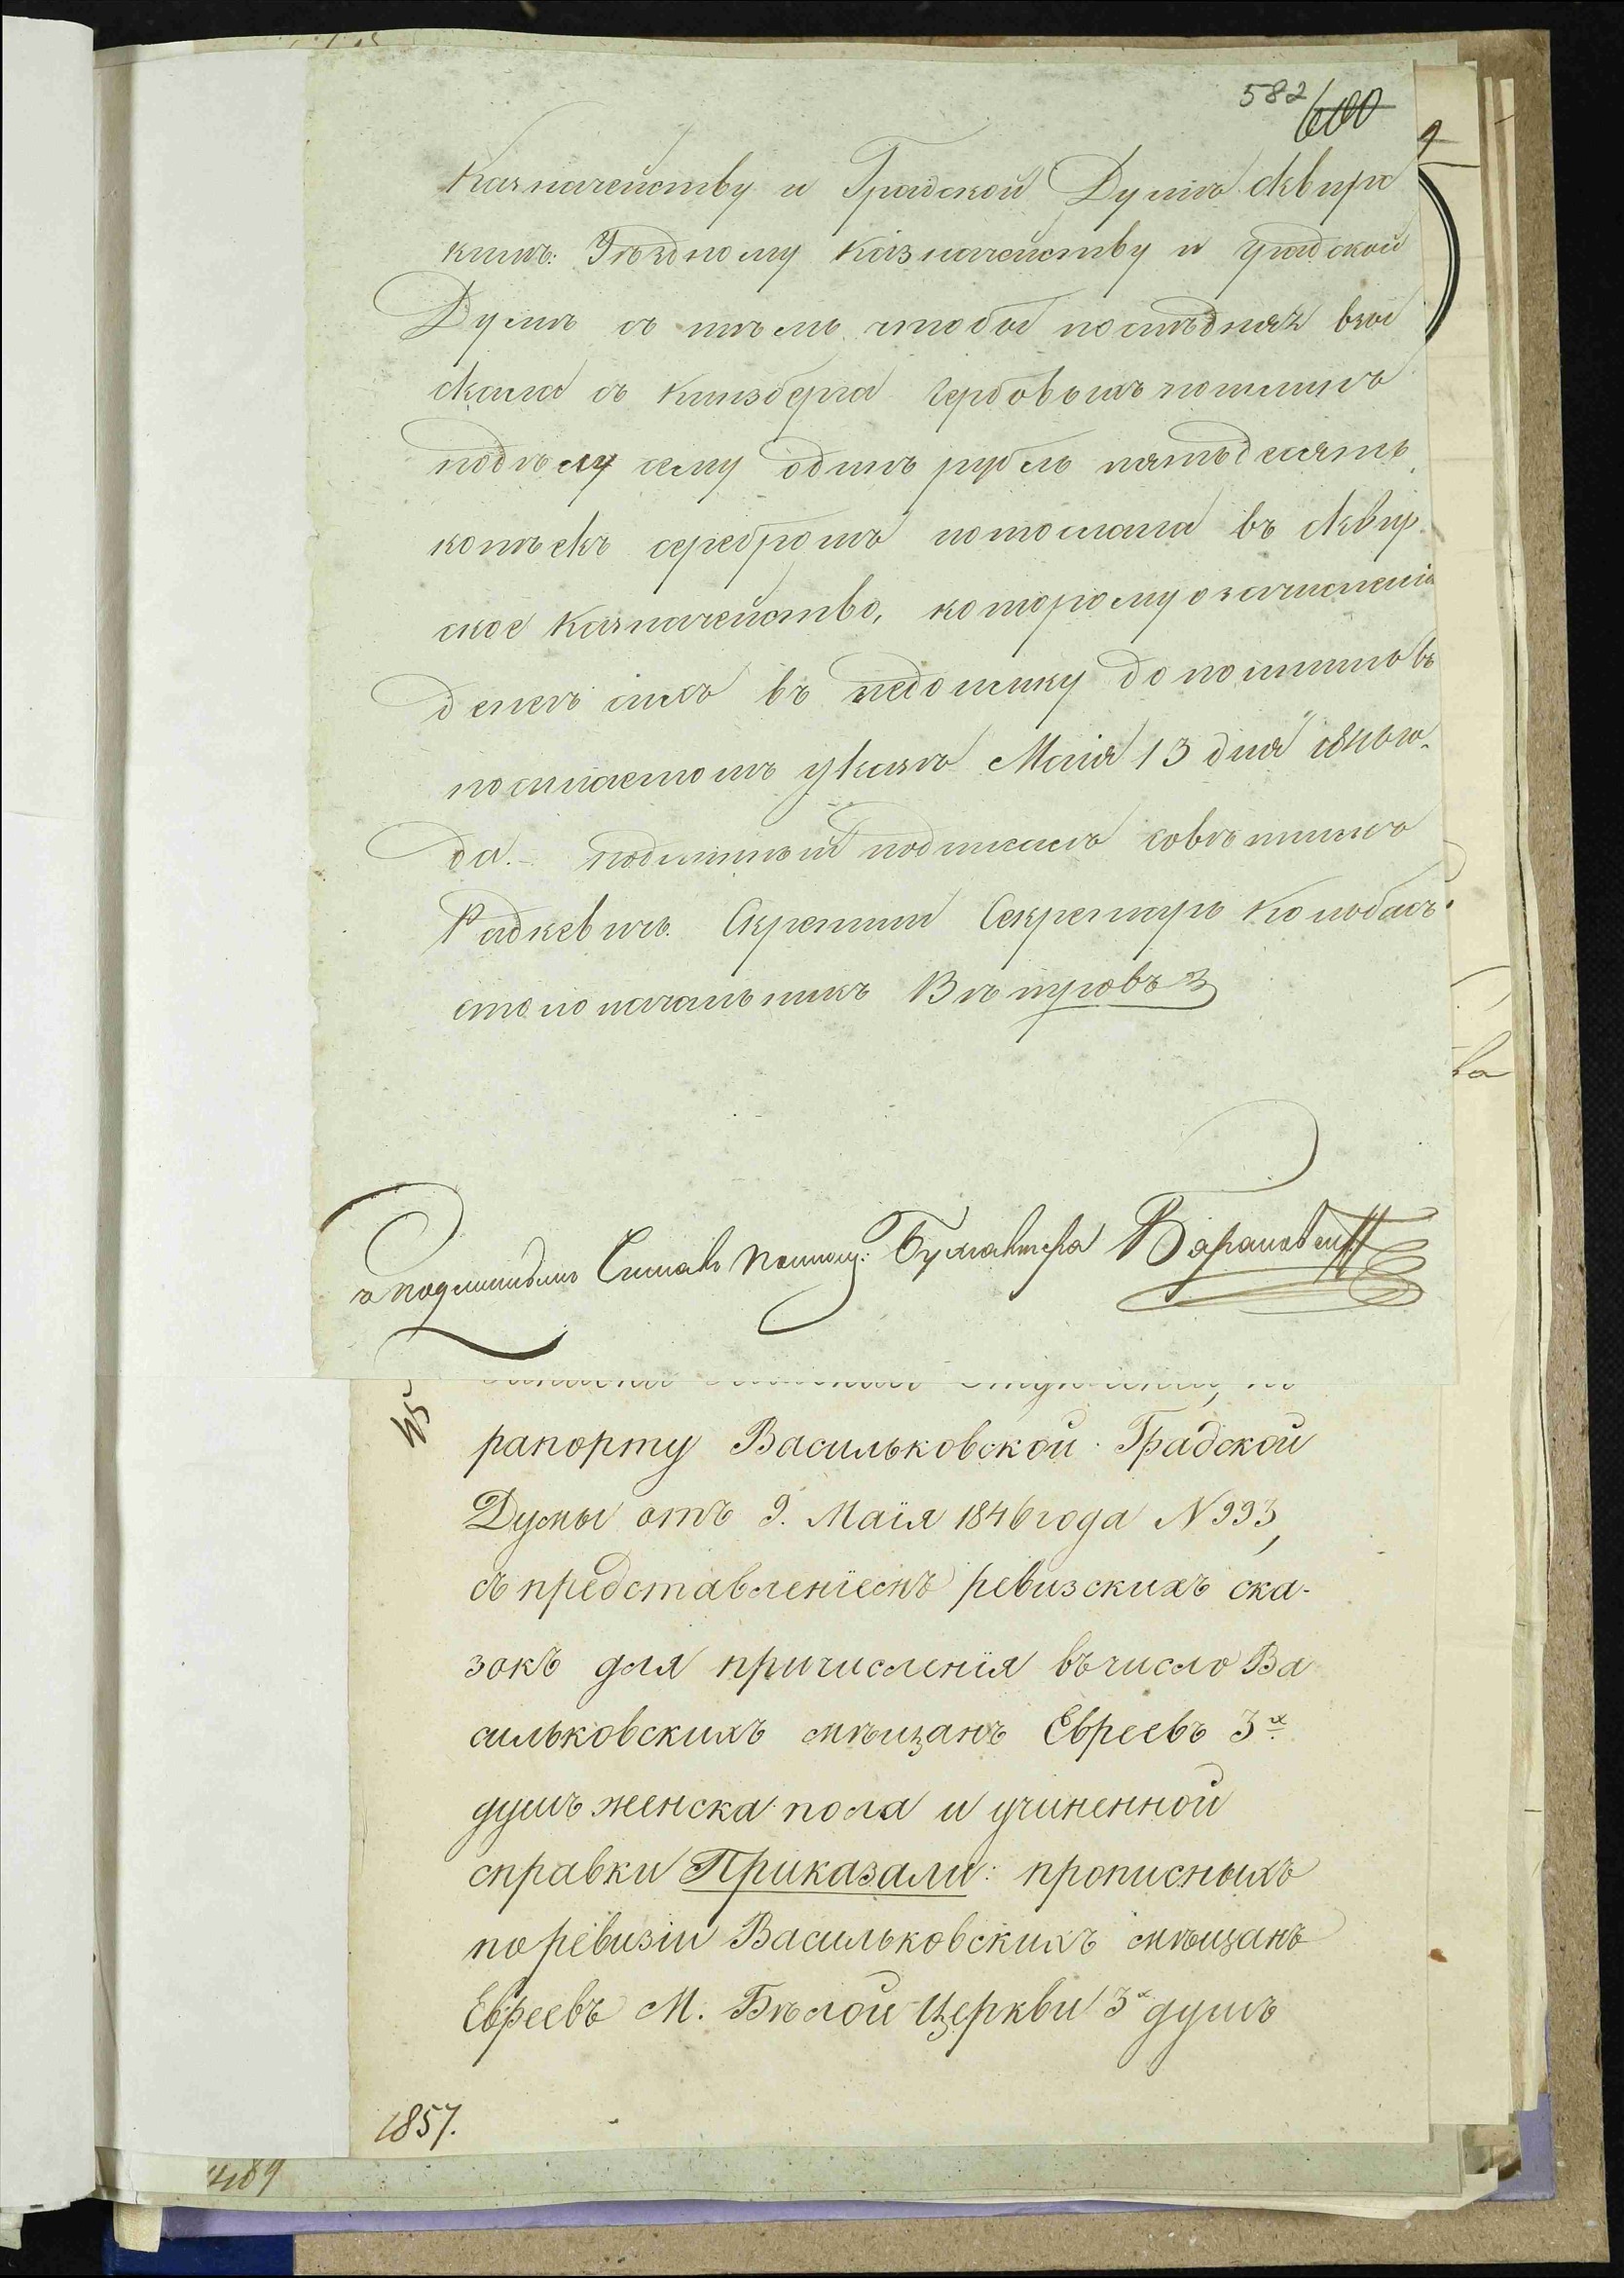 582 600
Казначейству и Градской Думѣ Сквирс
кимъ: Уѣздному Казначейству и Градской
Думѣ съ тѣмъ чтобы послѣдняя взы
скала съ Кинзберга Гербовыхъ пошлинъ
подѣлу сему одинъ рубль пятьдесятъ
копѣекъ серебромъ и отослала въ Сквир
ское Казначейство, которому о зачисленіи
денегъ сихъ въ недоимку до полнить въ
посылаемомъ указѣ Маія 13 дня
да. – подлинный подписалъ совѣтникъ
Радкевичъ. Скрепилъ Секретарь Колюбасъ
столоначальникъ Вѣтровъ
подлиннымъ Читалъ помощ: Бухгалтера Барановскій
рапорту Васильковской Градской
Думы отъ 9. Маія 1846 года N 993,
съ представленіемъ ревизскихъ ска-
зокъ для причисленія въ число Ва
сильковскихъ мѣщанъ Евреевъ 3х
душъ женска пола и учиненной
справки Приказали: прописныхъ
по ревизіи Васильковскихъ мѣщанъ
Евреевъ М. Бѣлой Церкви 3х душъ
1857.
489